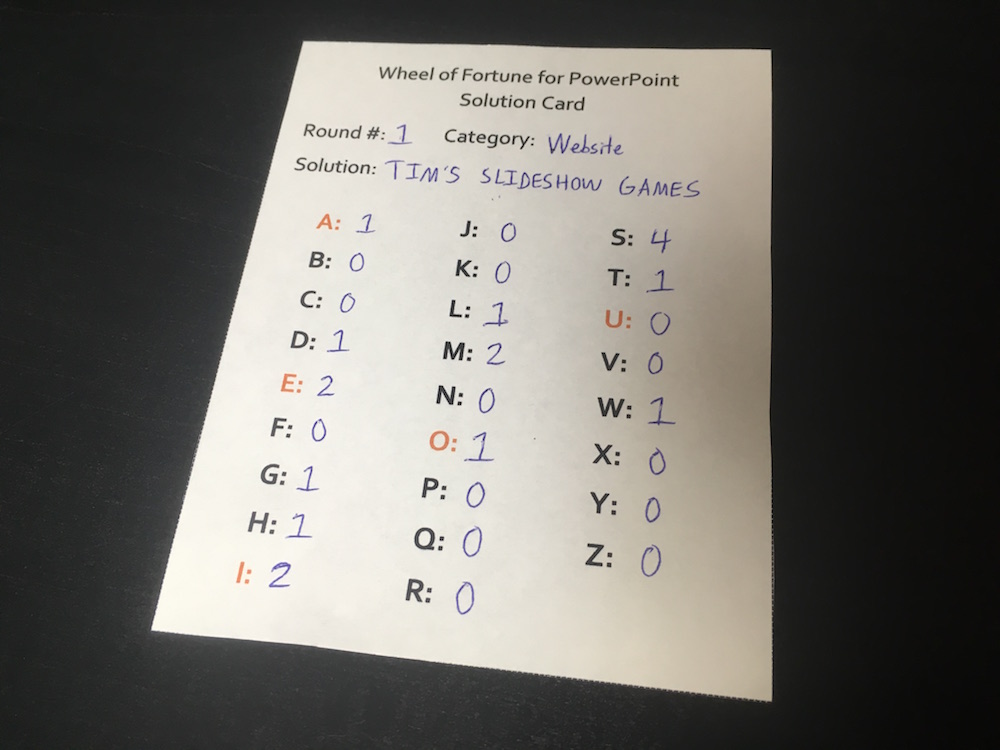 Wheel of Fortune for PowerPoint
Solution Card
Round #: 1 Category: Website
Solution: TIM'S SLIDESHOW GAMES
A: 1
B: 0
C: 0
D: 1
E: 2
F: 0
G: 1
H: 1
I: 2
J: 0
K: 0
L: 1
M: 2
N: 0
O: 1
P: 0
Q: 0
R: 0
S: 4
T: 1
U: 0
V: 0
W: 1
X: 0
Y: 0
Z: 0